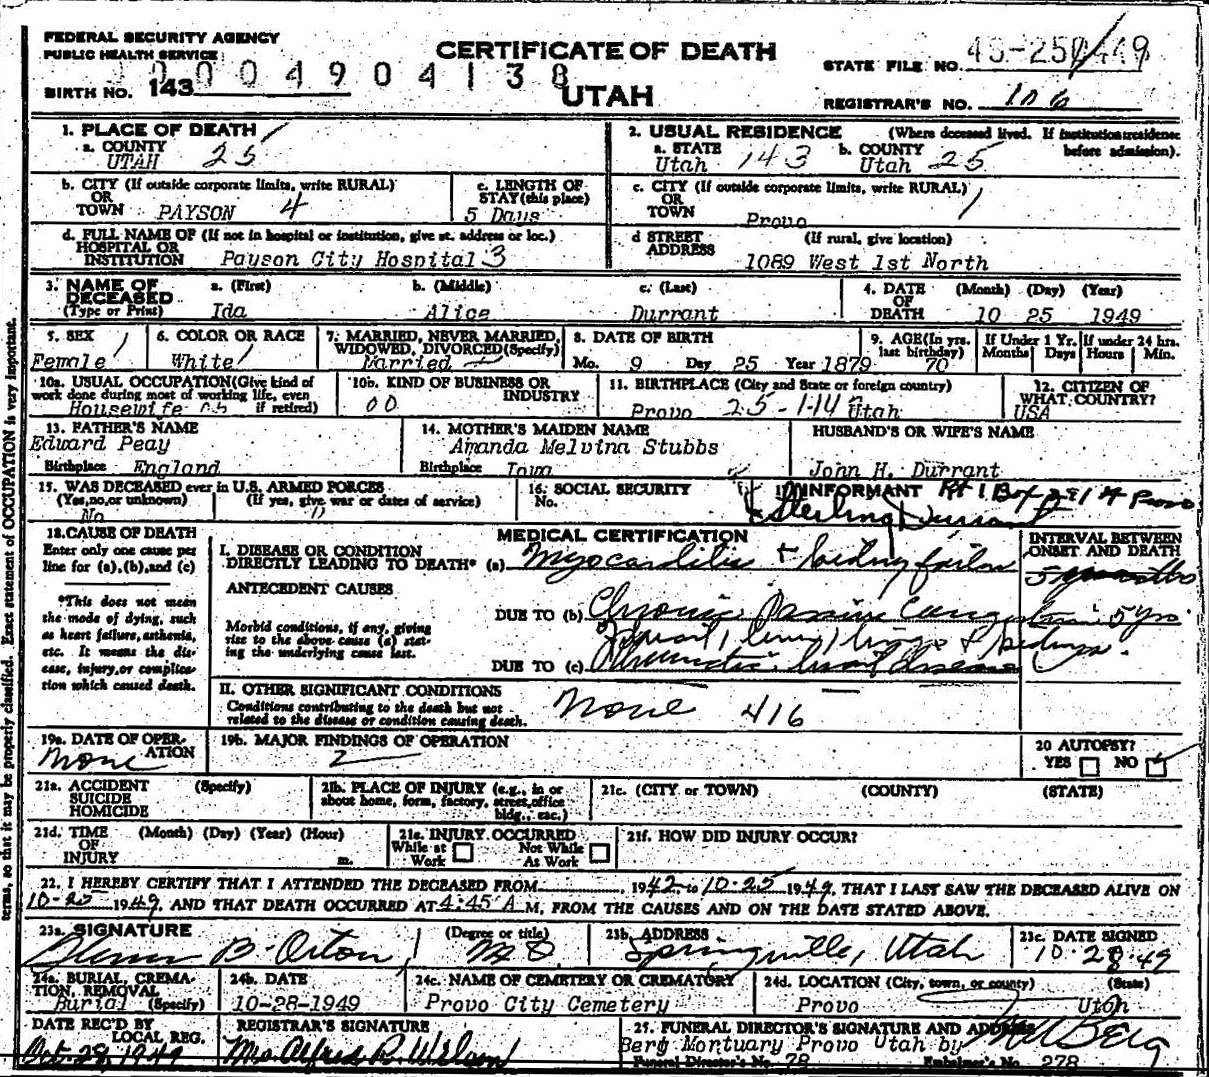 FEDERAL SECURITY AGENCY
PUBLIC HEALTH SERVICE
CERTIFICATE OF DEATH
STATE FILE NO.
0004904138
BIRTH NO. 143
UTAH
REGISTRAR'S NO. 106
1. PLACE OF DEATH
a. COUNTY
UTAH 25
2. USUAL RESIDENCE (Where deceased lived. If institution: residence before admission).
a. STATE b. COUNTY
Utah 143 Utah 25
b. CITY (If outside corporate limits, write RURAL)
OR
TOWN PAYSON 4
c. LENGTH OF
STAY (this place)
5 Days
c. CITY (If outside corporate limits, write RURAL)
OR
TOWN Provo 1
d. FULL NAME OF (If not in hospital or institution, give st. address or loc.)
HOSPITAL OR
INSTITUTION Payson City Hospital 3
d STREET (If rural, give location)
ADDRESS
1089 West 1st North
3. NAME OF DECEASED (Type or Print) a. (First) b. (Middle) c. (Last)
Ida Alice Durrant
4. DATE OF DEATH (Month) (Day) (Year)
10 25 1949
5. SEX
Female 1
6. COLOR OR RACE
White 1
7. MARRIED, NEVER MARRIED,
WIDOWED, DIVORCED (Specify)
Married
8. DATE OF BIRTH
Mo. 9 Day 25 Year 1879
9. AGE (In yrs. last birthday)
70
If Under 1 Yr. Months Days
If under 24 hrs. Hours Min.
10a. USUAL OCCUPATION (Give kind of
work done during most of working life, even
if retired)
Housewife
10b. KIND OF BUSINESS OR
INDUSTRY
00
11. BIRTHPLACE (City and State or foreign country)
Provo Utah
12. CITIZEN OF
WHAT COUNTRY?
USA
13. FATHER'S NAME
Edward Peay
Birthplace England
14. MOTHER'S MAIDEN NAME
Amanda Melvina Stubbs
Birthplace Iowa
HUSBAND'S OR WIFE'S NAME
John H. Durrant
15. WAS DECEASED ever in U.S. ARMED FORCES
(Yes, no, or unknown) (If yes, give war or dates of service)
No
16. SOCIAL SECURITY
No.
INFORMANT Rt 1 Box Provo
Sterling Durrant
18. CAUSE OF DEATH
Enter only one cause per
line for (a), (b), and (c)
*This does not mean
the mode of dying, such
as heart failure, asthenia,
etc. It means the dis-
ease, injury, or complica-
tion which caused death.
MEDICAL CERTIFICATION
INTERVAL BETWEEN
ONSET AND DEATH
I. DISEASE OR CONDITION
DIRECTLY LEADING TO DEATH* (a) Myocarditis + kidney failure
ANTECEDENT CAUSES
Morbid conditions, if any, giving
rise to the above cause (a) stat-
ing the underlying cause last.
DUE TO (b) Chronic Passive Congestion 5 yrs
of heart, lungs + kidneys.
DUE TO (c) Rheumatic heart disease
II. OTHER SIGNIFICANT CONDITIONS
Conditions contributing to the death but not
related to the disease or condition causing death.
None 416
19a. DATE OF OPER-
ATION
None
19b. MAJOR FINDINGS OF OPERATION
2
20 AUTOPSY?
YES NO
21a. ACCIDENT (Specify)
SUICIDE
HOMICIDE
21b. PLACE OF INJURY (e.g., in or
about home, form, factory, street, office
bldg., etc.)
21c. (CITY or TOWN) (COUNTY) (STATE)
21d. TIME (Month) (Day) (Year) (Hour)
OF
INJURY m.
21e. INJURY OCCURRED
While at Work Not While At Work
21f. HOW DID INJURY OCCUR?
22. I HEREBY CERTIFY THAT I ATTENDED THE DECEASED FROM , 1942 to 10-25 1949, THAT I LAST SAW THE DECEASED ALIVE ON
10-25 1949, AND THAT DEATH OCCURRED AT 4:45 A M, FROM THE CAUSES AND ON THE DATE STATED ABOVE.
23a. SIGNATURE (Degree or title)
Glenn B. Orton, MD
23b. ADDRESS
Springville, Utah
23c. DATE SIGNED
10-28-49
24a. BURIAL, CREMA-
TION, REMOVAL
Burial (Specify)
24b. DATE
10-28-1949
24c. NAME OF CEMETERY OR CREMATORY
Provo City Cemetery
24d. LOCATION (City, town, or county) (State)
Provo Utah
DATE REC'D BY
LOCAL REG.
Oct. 28, 1949
REGISTRAR'S SIGNATURE
Mrs Alfred R. Wilson
25. FUNERAL DIRECTOR'S SIGNATURE AND ADDRESS
Berg Mortuary Provo Utah by
Funeral Director's No. 78 Embalmer's No. 278
terms, so that it may be properly classified. Exact statement of OCCUPATION is very important.